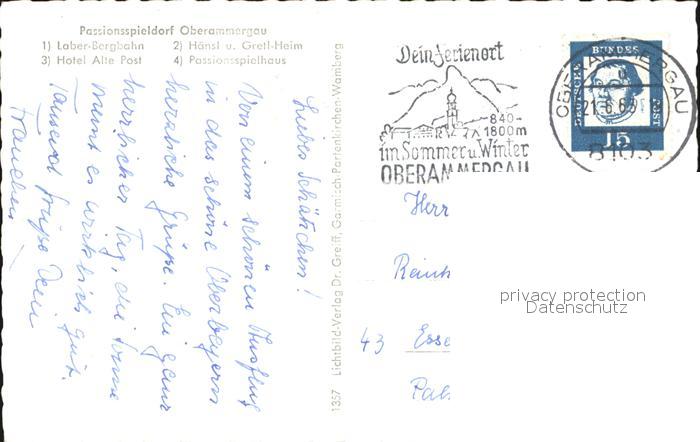 Passionsspieldorf Oberammergau
1) Laber-Bergbahn 2) Hänsl u. Gretl-Heim
3) Hotel Alte Post 4) Passionsspielhaus
Liebes Schätzchen!
Von einem schönen Ausflug
in das schöne Oberbayern
herzliche Grüße. Ein ganz
herrlicher Tag, die Sonne
meint es wirklich gut.
Tausend Grüße Dein
Frauchen
1357 Lichtbild-Verlag Dr. Greiff, Garmisch-Partenkirchen-Wamberg
Dein Ferienort
840-
1800m
im Sommer u. Winter
OBERAMMERGAU
DEUTSCHE BUNDES POST
15
OBERAMMERGAU
8103
Herr
43 Esse
privacy protection
Datenschutz